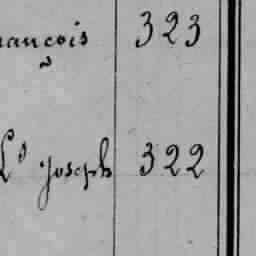 rançois 323
Ls Joseph 322